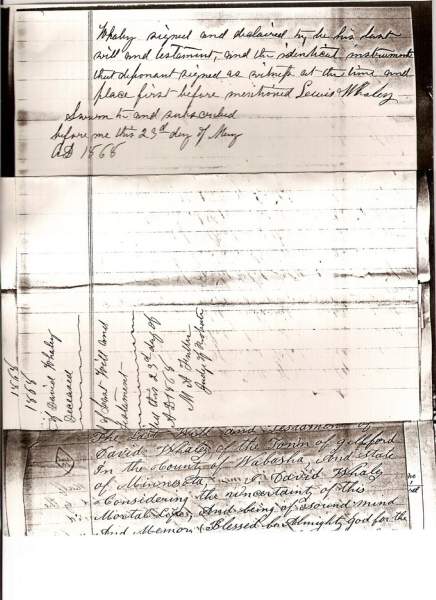 Whaley signed and declaired by he his last
will and testament, and the identical instrument
that deponant signed as witness at the time and
place first before mentioned Lewis Whaley
Sworn to and subscribed
before me this 23d day of May
AD 1868
1868
1868
of David Whaley
Deceased
of Last Will and
Testament
this 23d day of
AD 1868
M A Fuller
Judge of Probate
The Last Will and Testament of
David Whaley of the Town of Gillford
In the County of Wabasha, And State
of Minnesota, I David Whaley
Considering the uncertainty of this
Mortal Life, And being of sound mind
And Memory Blessed be Almighty God for the